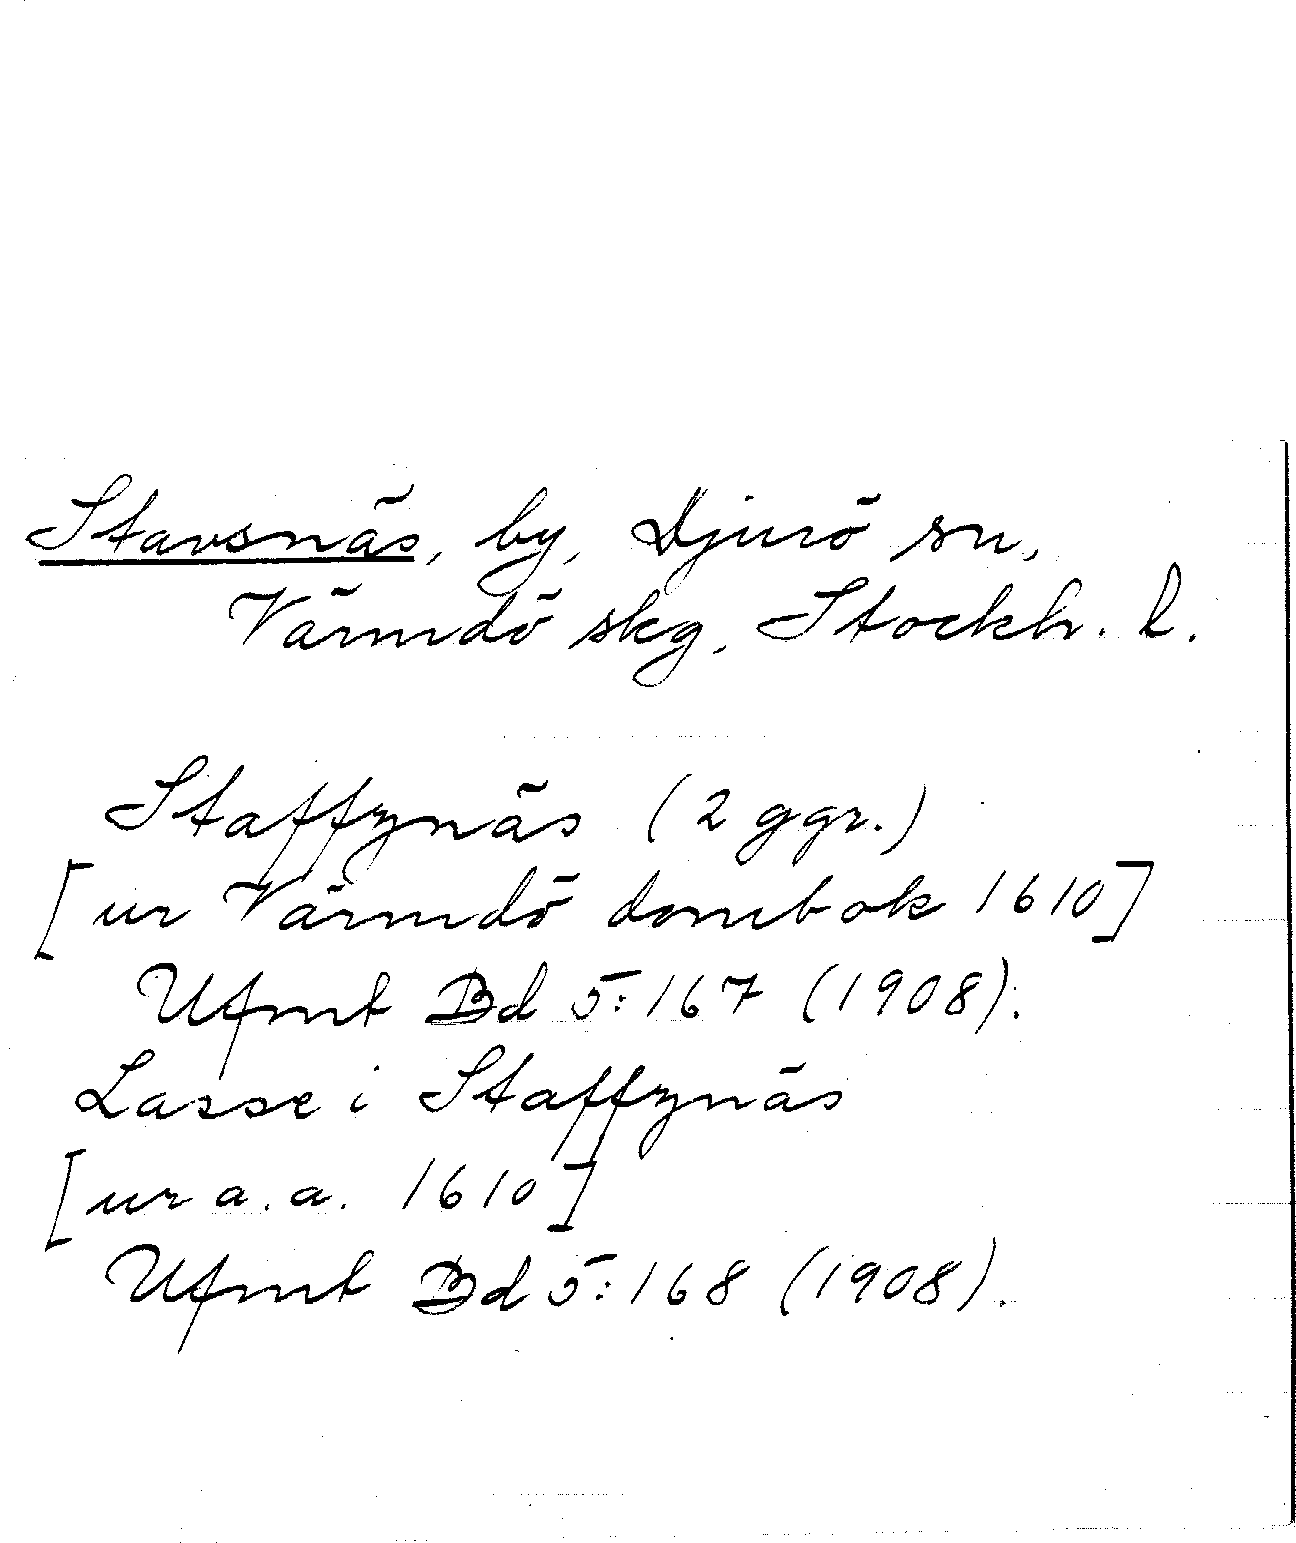 Stavsnäs, by, Djurö sn,
Värmdö skg, Stockh. l.
Staffznäs (2 ggr.)
[ur Värmdö dombok 1610]
Ufmt Bd 5:167 (1908).
Lasse i Staffznäs
[ur a.a. 1610]
Ufmt Bd 5:168 (1908).